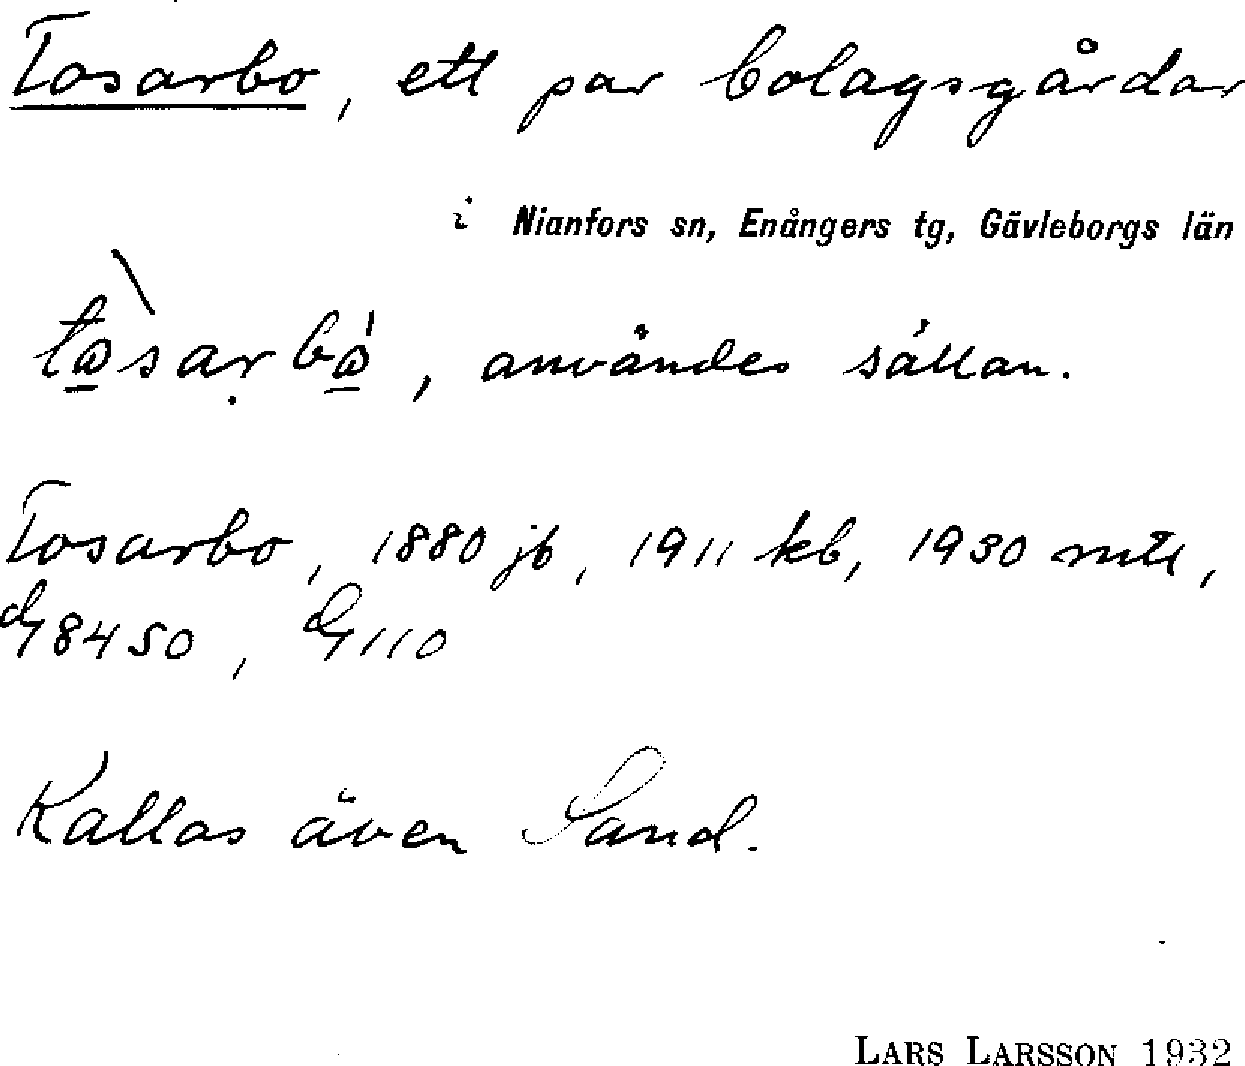 Tosarbo, ett par bolagsgårdar
i Nianfors sn, Enångers tg, Gävleborgs län
, användes sällan.
Tosarbo, 1880 jb, 1911 kb, 1930 mtl,
8450, 110
Kallas även Sand.
LARS LARSSON 1932